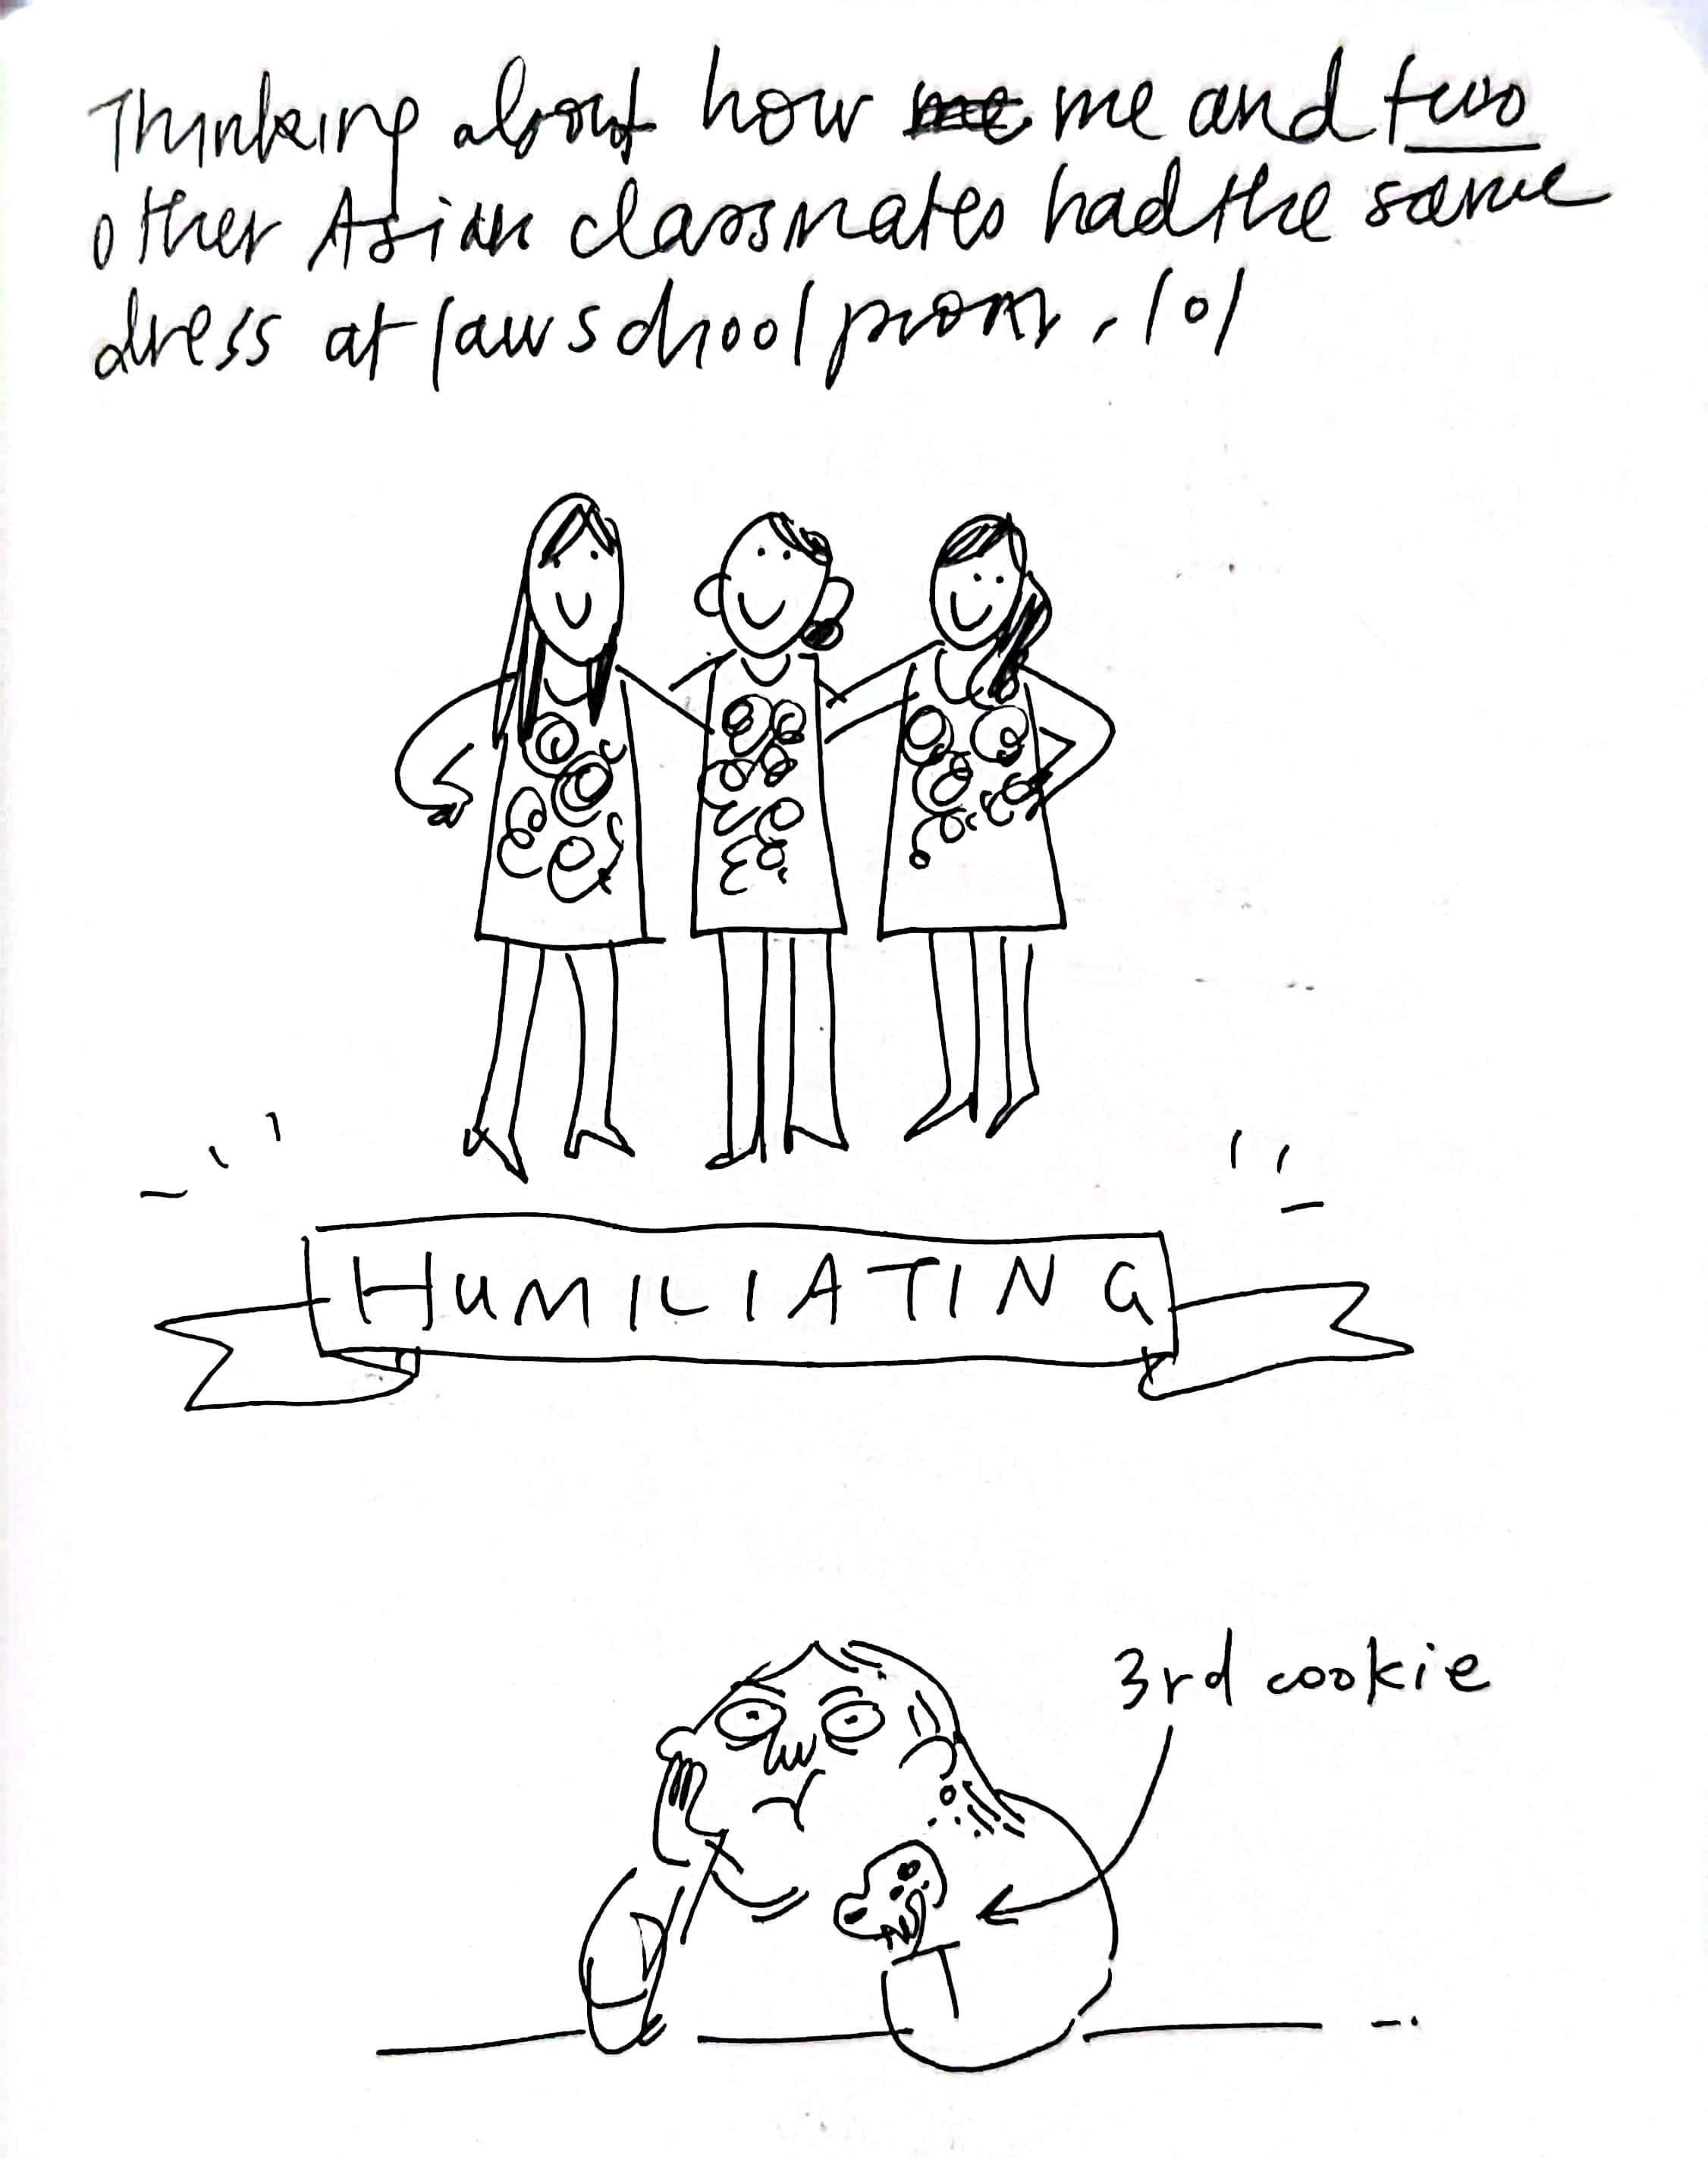 Thinking about how me me and two
other Asian classmates had the same
dress at law school prom. lol
HUMILIATING
3rd cookie